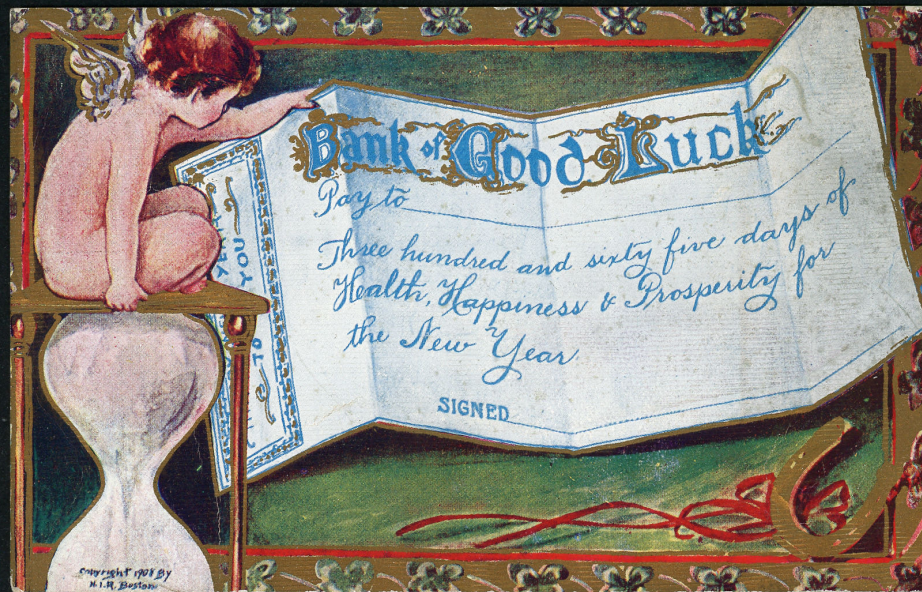 Bank of Good Luck
Pay to
Three hundred and sixty five days of
Health, Happiness & Prosperity for
the New Year
SIGNED
YEAR
TO YOU
Copyright 1908 By
H.I.R. Boston